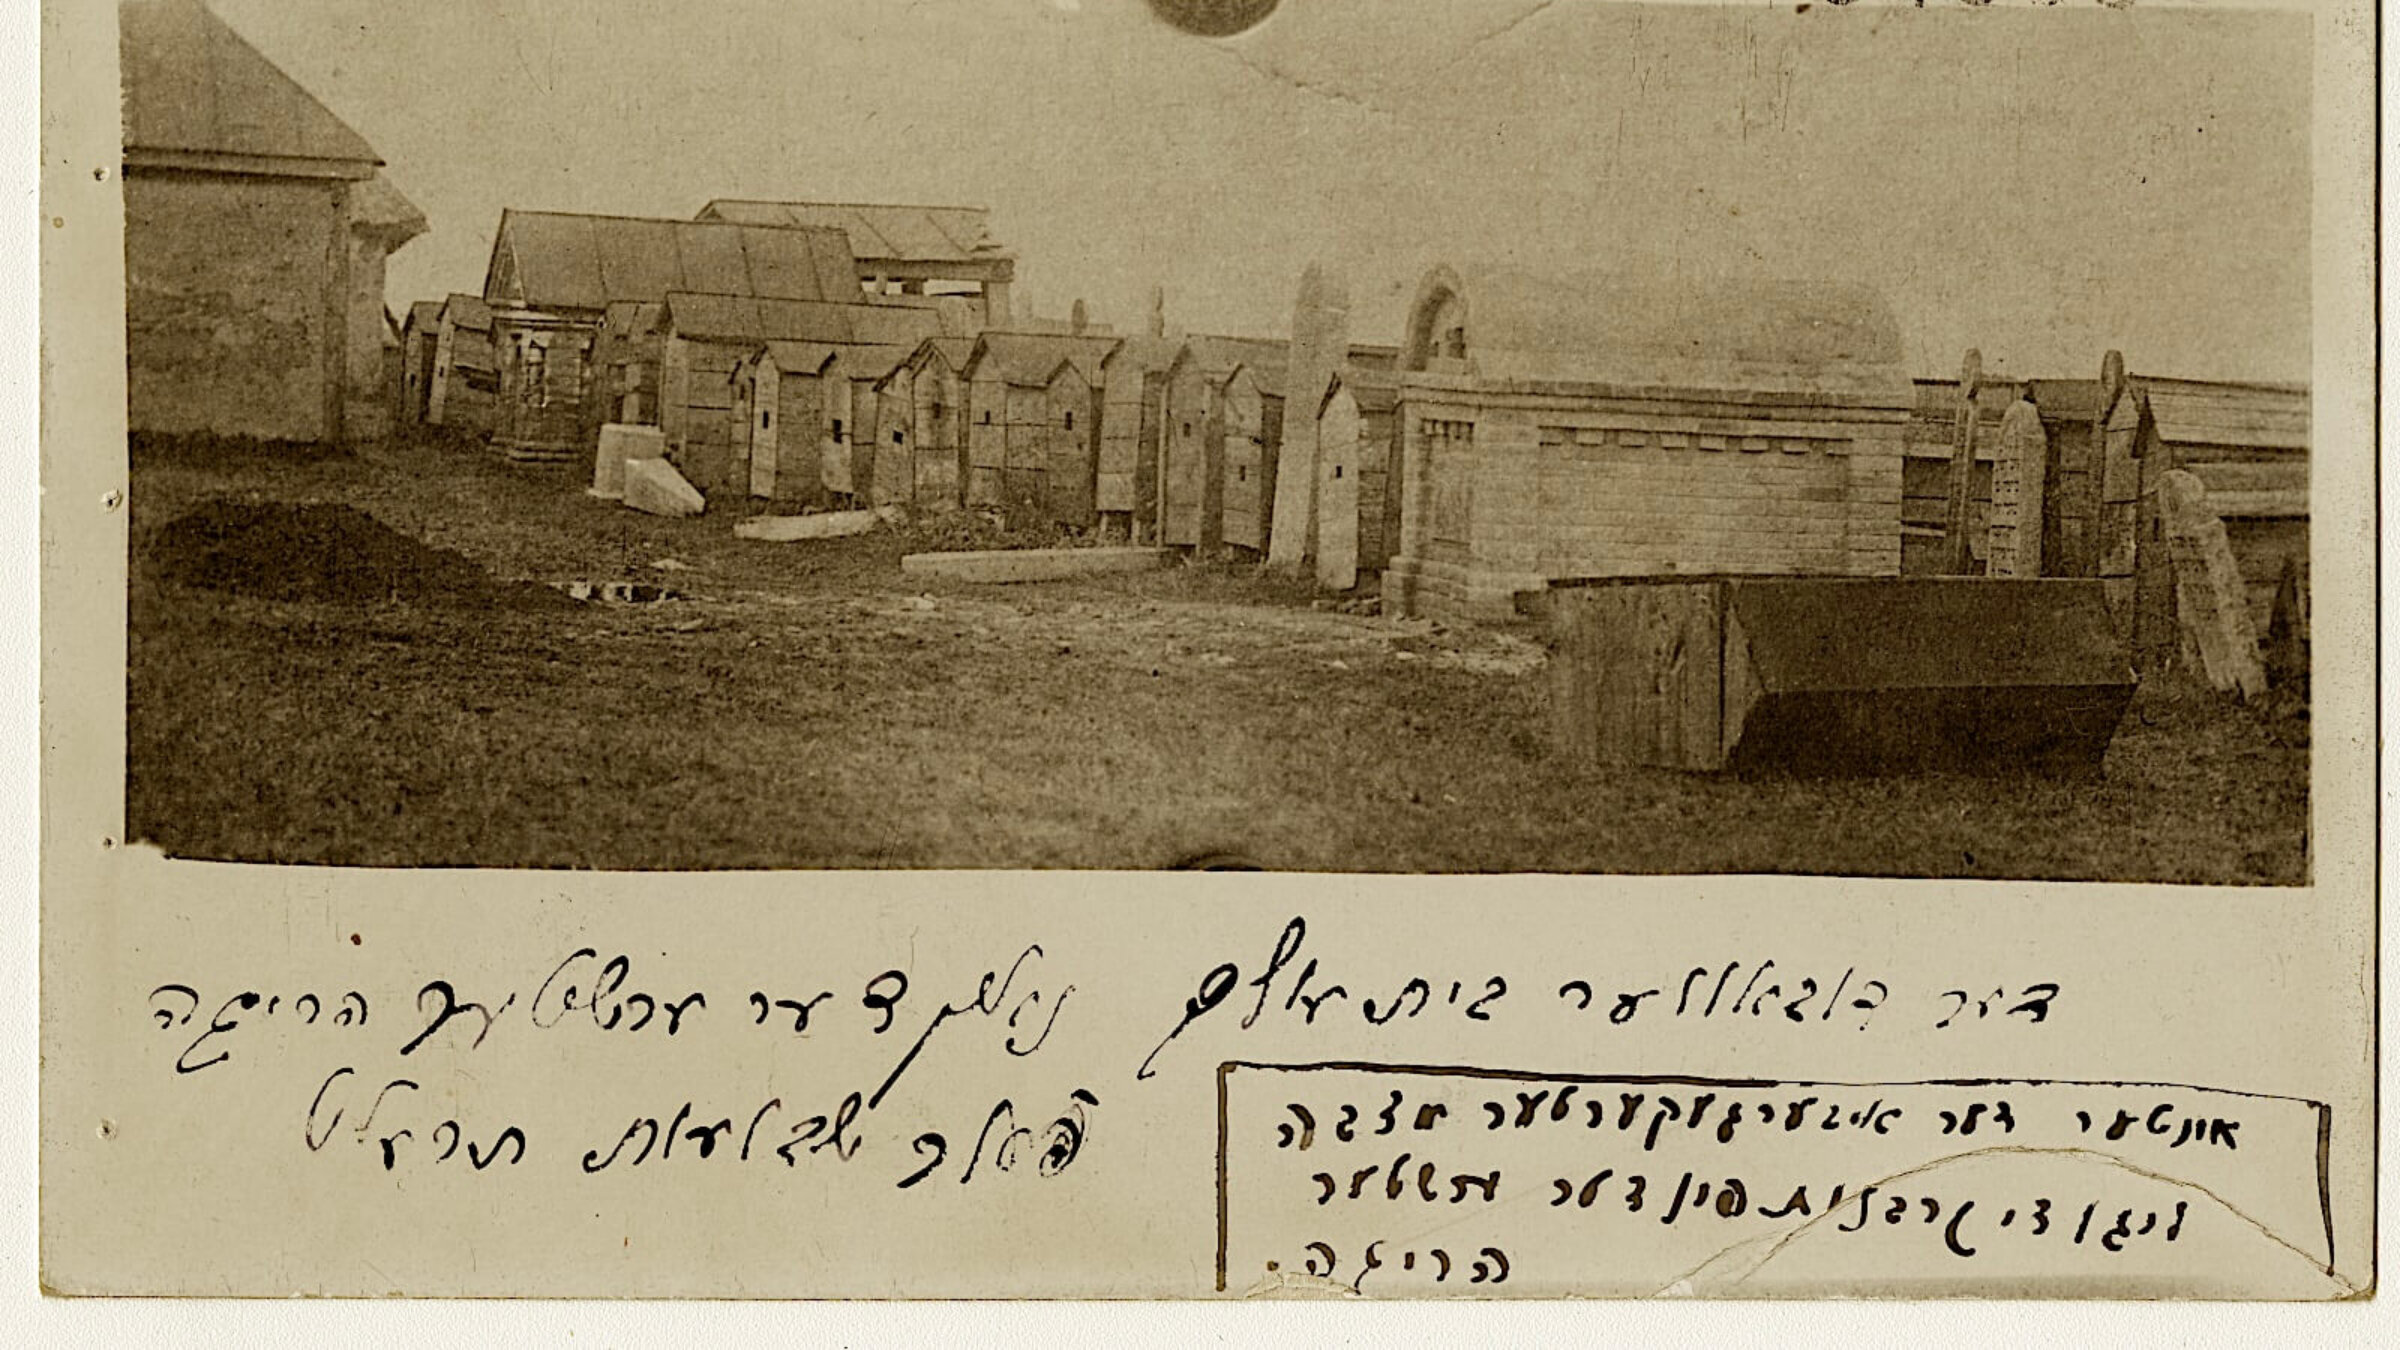 דער דובאווער בית עולם נאך דער ערשטער הריגה
ערב שבועות תרע״ט
אונטער דער איבערגעקערטער מצבה
ליגן די קרבנות פון דער ערשטער
הריגה.